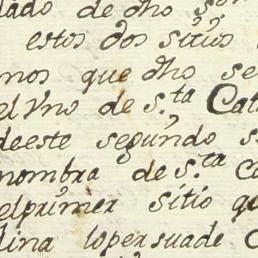 lado de dho s.or
estos dos sitios
mos que dho se
el Vno de s.ta Cat
deeste segundo s
nombra de s.ta Ca
elprimer sitio qu
lina lopersuade